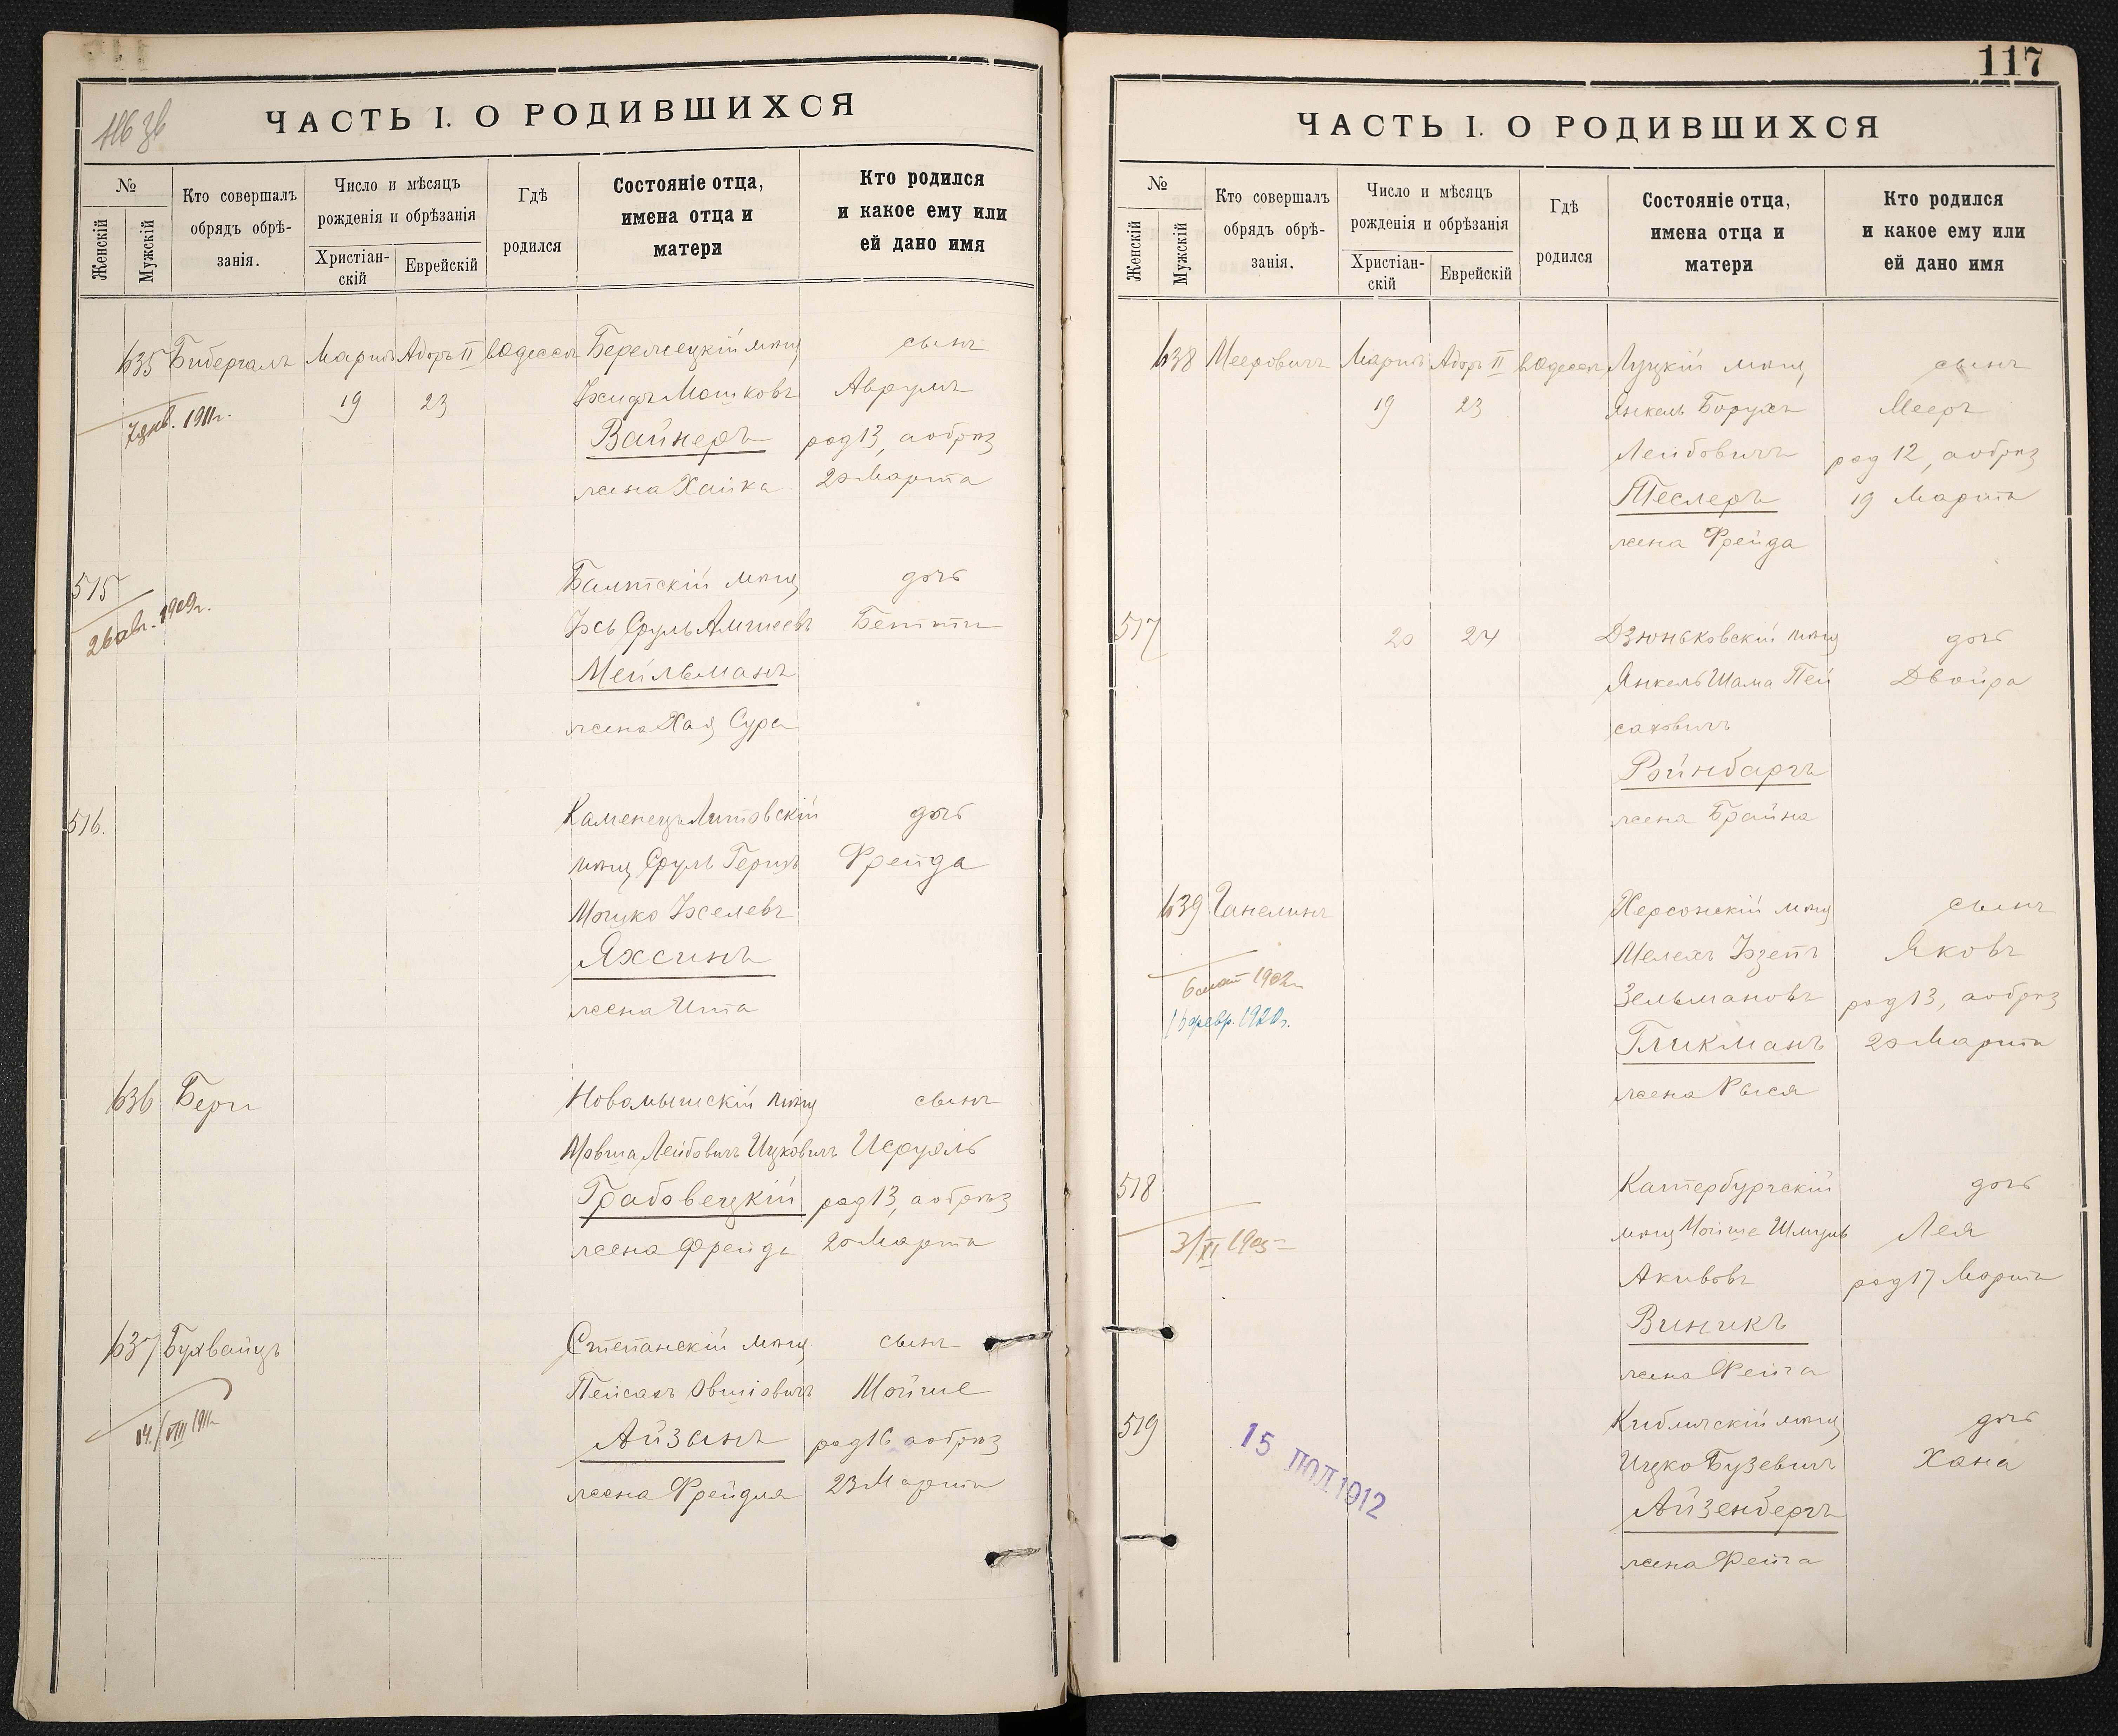 116 зв
ЧАСТЬ I. О РОДИВШИХСЯ
№
Женскій
Мужскій
Кто совершалъ
обрядъ обрѣ-
занія.
Число и мѣсяцъ
рожденія и обрѣзанія
Христіан-
скій
Еврейскій
Гдѣ
родился
Состояніе отца,
имена отца и
матери
Кто родился
и какое ему или
ей дано имя
635 Бибергалъ Мартъ Адоръ II въ Одессѣ мѣщ сынъ
19 23 Мошковъ Аврумъ
7 янв. 1911 г.
Вайнеръ род 13, а обрѣз
жена Хайка 20 Марта
515 Балтскій мѣщ дочь
26 авг. 1909 г.
Сруль Бетти
Мейльманъ
жена Хая Сура
516. Каменецъ Литовскій дочь
мѣщ Сруль Герцъ Фрейда
Яхсинъ
жена Ита
636 Бергъ Новомышскій мѣщ сынъ
Мовша Лейбовичъ Ицковичъ Исруэль
Грабовецкій род 13, а обрѣз
жена Фрейда 20 Марта
637 Бухвайцъ Степанскій мѣщ сынъ
Пейсахъ Овшіовичъ Мойше
14/VIII 1911
Айзынъ род 16 а обрѣз
жена Фрейдля 23 Марта
117
ЧАСТЬ I. О РОДИВШИХСЯ
№
Женскій
Мужскій
Кто совершалъ
обрядъ обрѣ-
занія.
Число и мѣсяцъ
рожденія и обрѣзанія
Христіан-
скій
Еврейскій
Гдѣ
родился
Состояніе отца,
имена отца и
матери
Кто родился
и какое ему или
ей дано имя
638 Мееровичъ Мартъ Адоръ II въ Одессѣ Луцкій мѣщ сынъ
19 23 Янкель Борухъ Мееръ
Лейбовичъ род 12, а обрѣз
Теслеръ 19 Марта
жена Фрейда
517 20 24 Дзюньковскій мѣщ дочь
Янкель Шама Пей Двойра
саховичъ
Рэйнбаргъ
жена Брайна
639 Ганелинъ Херсонскій мѣщ сынъ
Мелехъ Яковъ
6 1902
16 февр. 1920 г.
Зельмановъ род 13, а обрѣз
Гликманъ 20 Марта
жена Рыся
518 Катербургскій дочь
мѣщ Мойше Шмуль Лея
3/VI 1905
Акивовъ род 17 Марта
Виникъ
жена Фейга
519 Кибличскій мѣщ дочь
15 ІЮЛ 1912
Ицко Бузевичъ Хана
Айзенбергъ
жена Фейга